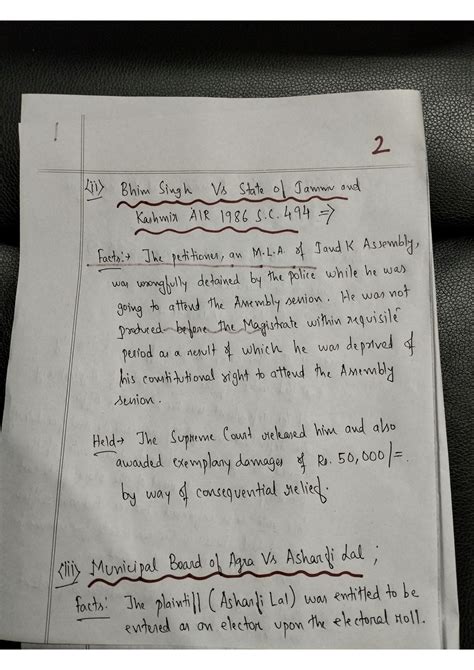 2
(ii) Bhim Singh Vs State of Jammu and
Kashmir AIR 1986 S.C. 494 ⇒
Facts:→ The petitioner, an M.L.A. of J and K Assembly,
was wrongfully detained by the police while he was
going to attend the Assembly session. He was not
produced before the Magistrate within requisite
period as a result of which he was deprived of
his constitutional right to attend the Assembly
session.
Held→ The Supreme Court released him and also
awarded exemplary damages of Rs. 50,000/=.
by way of consequential relief.
(iii) Municipal Board of Agra Vs Asharfi Lal ;
Facts: The plaintiff (Asharfi Lal) was entitled to be
entered as an elector upon the electoral roll.